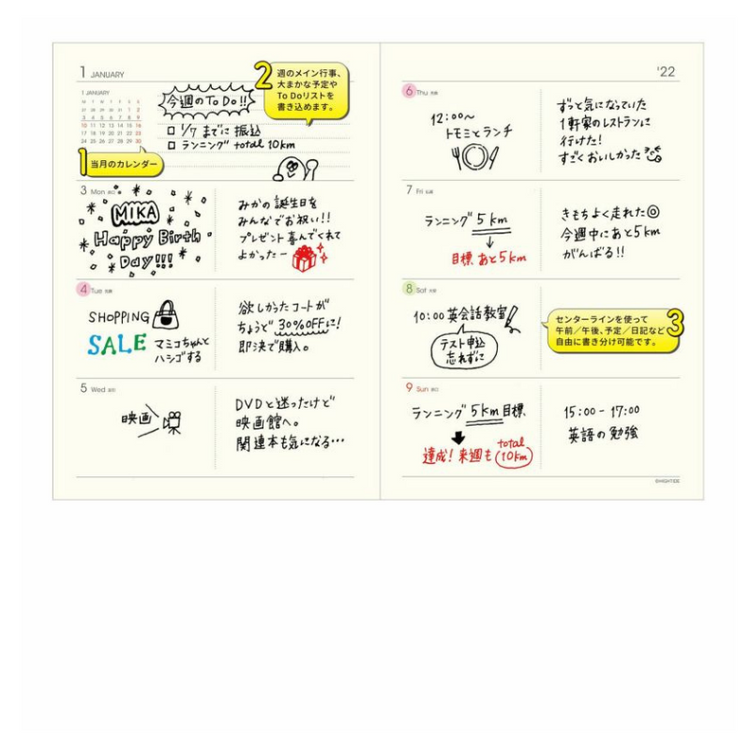 1 JANUARY
1 JANUARY
M T W T F S S
27 28 29 30 31 1 2
3 4 5 6 7 8 9
10 11 12 13 14 15 16
17 18 19 20 21 22 23
24 25 26 27 28 29 30
1 当月のカレンダー
今週のTo Do!!
1/7 までに 振込
ランニング total 10km
2 週のメイン行事、
大まかな予定や
To Doリストを
書き込めます。
3 Mon
MIKA
Happy Birth
Day!!!
みかの誕生日を
みんなでお祝い!!
プレゼント喜んでくれて
よかったー
4 Tue
SHOPPING
SALE マミコちゃんと
ハシゴする
欲しかったコートが
ちょうど30%OFFに!
即決で購入。
5 Wed
映画
DVDと迷ったけど
映画館へ。
関連本も気になる…
'22
6 Thu
12:00〜
トモミとランチ
ずっと気になっていた
1軒家のレストランに
行けた!
すごくおいしかった
7 Fri
ランニング 5km
目標 あと5km
きもちよく走れた◎
今週中にあと5km
がんばる!!
8 Sat
10:00 英会話教室
テスト申込
忘れずに
センターラインを使って
午前/午後、予定/日記など
自由に書き分け可能です。
3
9 Sun
ランニング 5km目標
達成! 来週も total
10km
15:00-17:00
英語の勉強
©HIGHTIDE